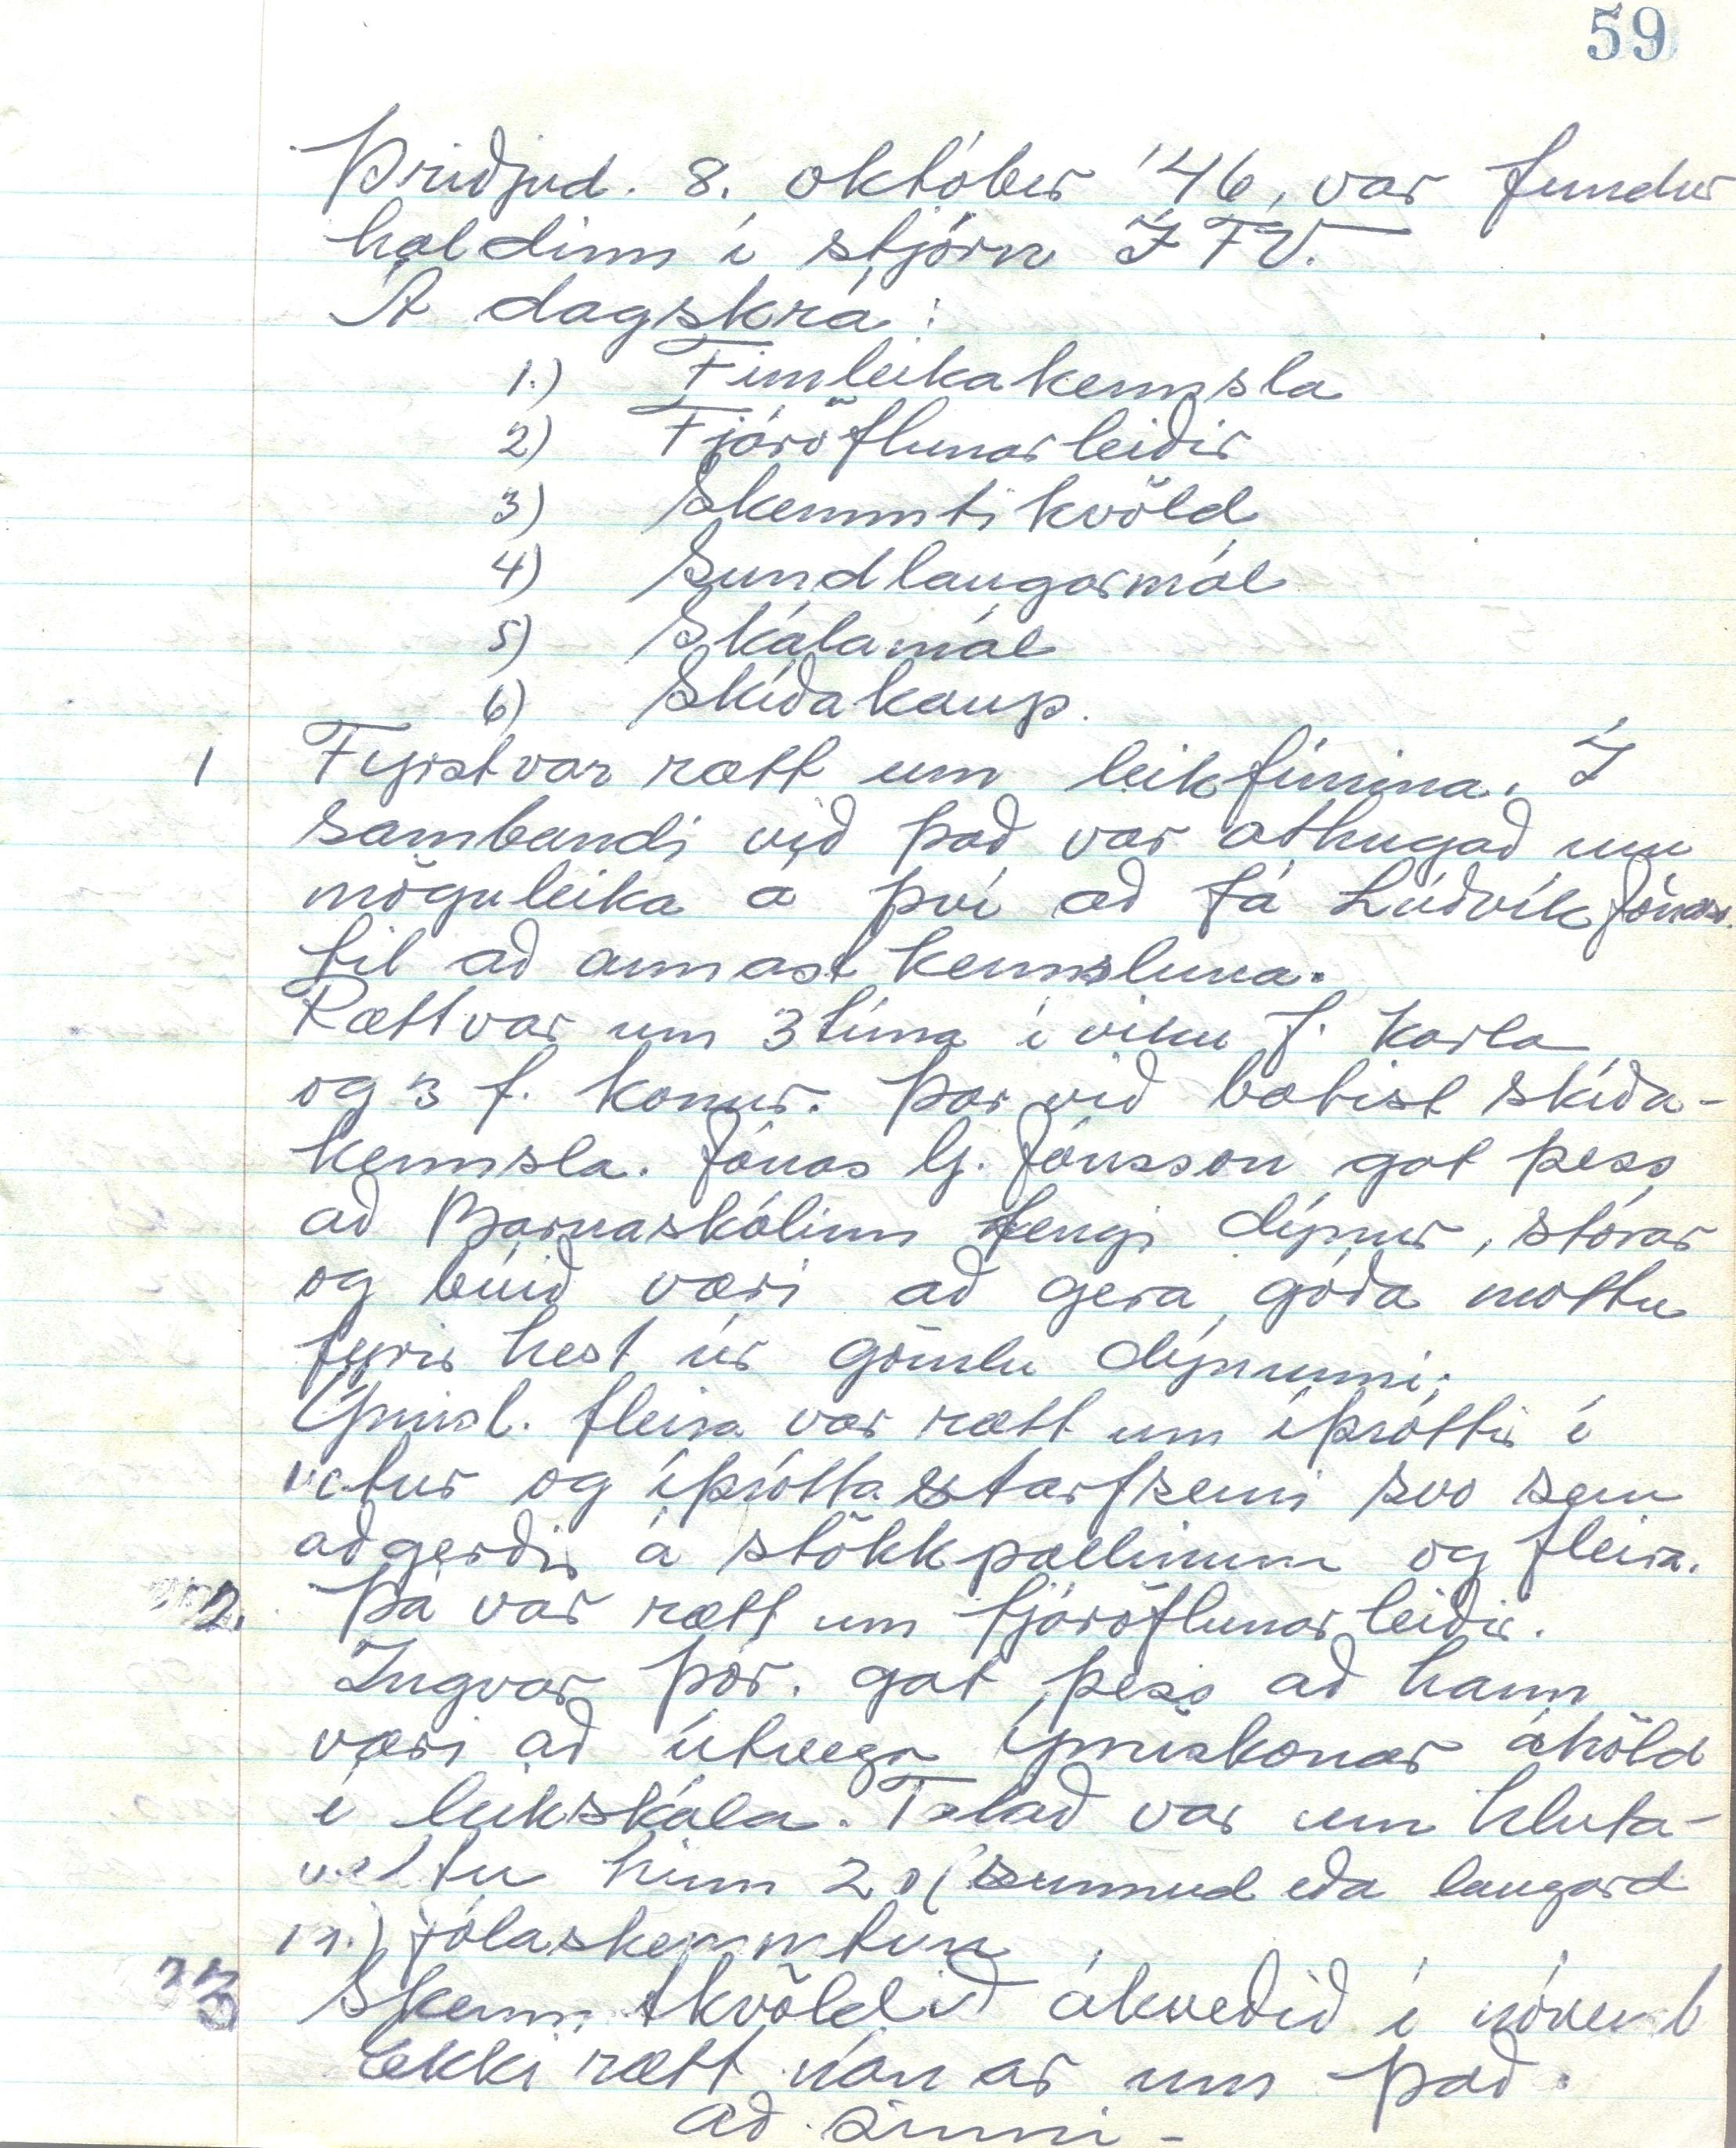 59
Þriðjud. 8. október '46, var fundur
haldinn í stjórn ÍFV.
Á dagskrá:
1.) Fimleikakennsla
2) Fjáröflunarleiðir
3) Skemmtikvöld
4) Sundlaugarmál
5) Skálamál
6) Skíðakaup.
1 Fyrst var rætt um leikfimina. Í
sambandi við það var athugað um
möguleika á því að fá Lúðvík Jónass.
til að annast kennsluna.
Rætt var um 3 tíma í viku f. karla
og 3 f. konur. Þar við bætist skíða-
kennsla. Jónas G. Jónsson gat þess
að Barnaskólinn fengi dýnur, stórar
og búið væri að gera góða mottu
fyrir hest úr gömlu dýnunni.
Ýmisl. fleira var rætt um íþróttir í
vetur og íþróttastarfsemi svo sem
aðgerðir á stökkpallinum og fleira.
2. Þá var rætt um fjáröflunarleiðir.
Ingvar Þór. gat þess að hann
væri að útvega ýmiskonar áhöld
í leikskála. Talað var um hluta-
veltu hinn 20 (sunnud eða laugard
19.) jólaskemmtun
3 Skemmtkvöldið ákveðið í nóvemb
Ekki rætt nánar um það.
að sinni -